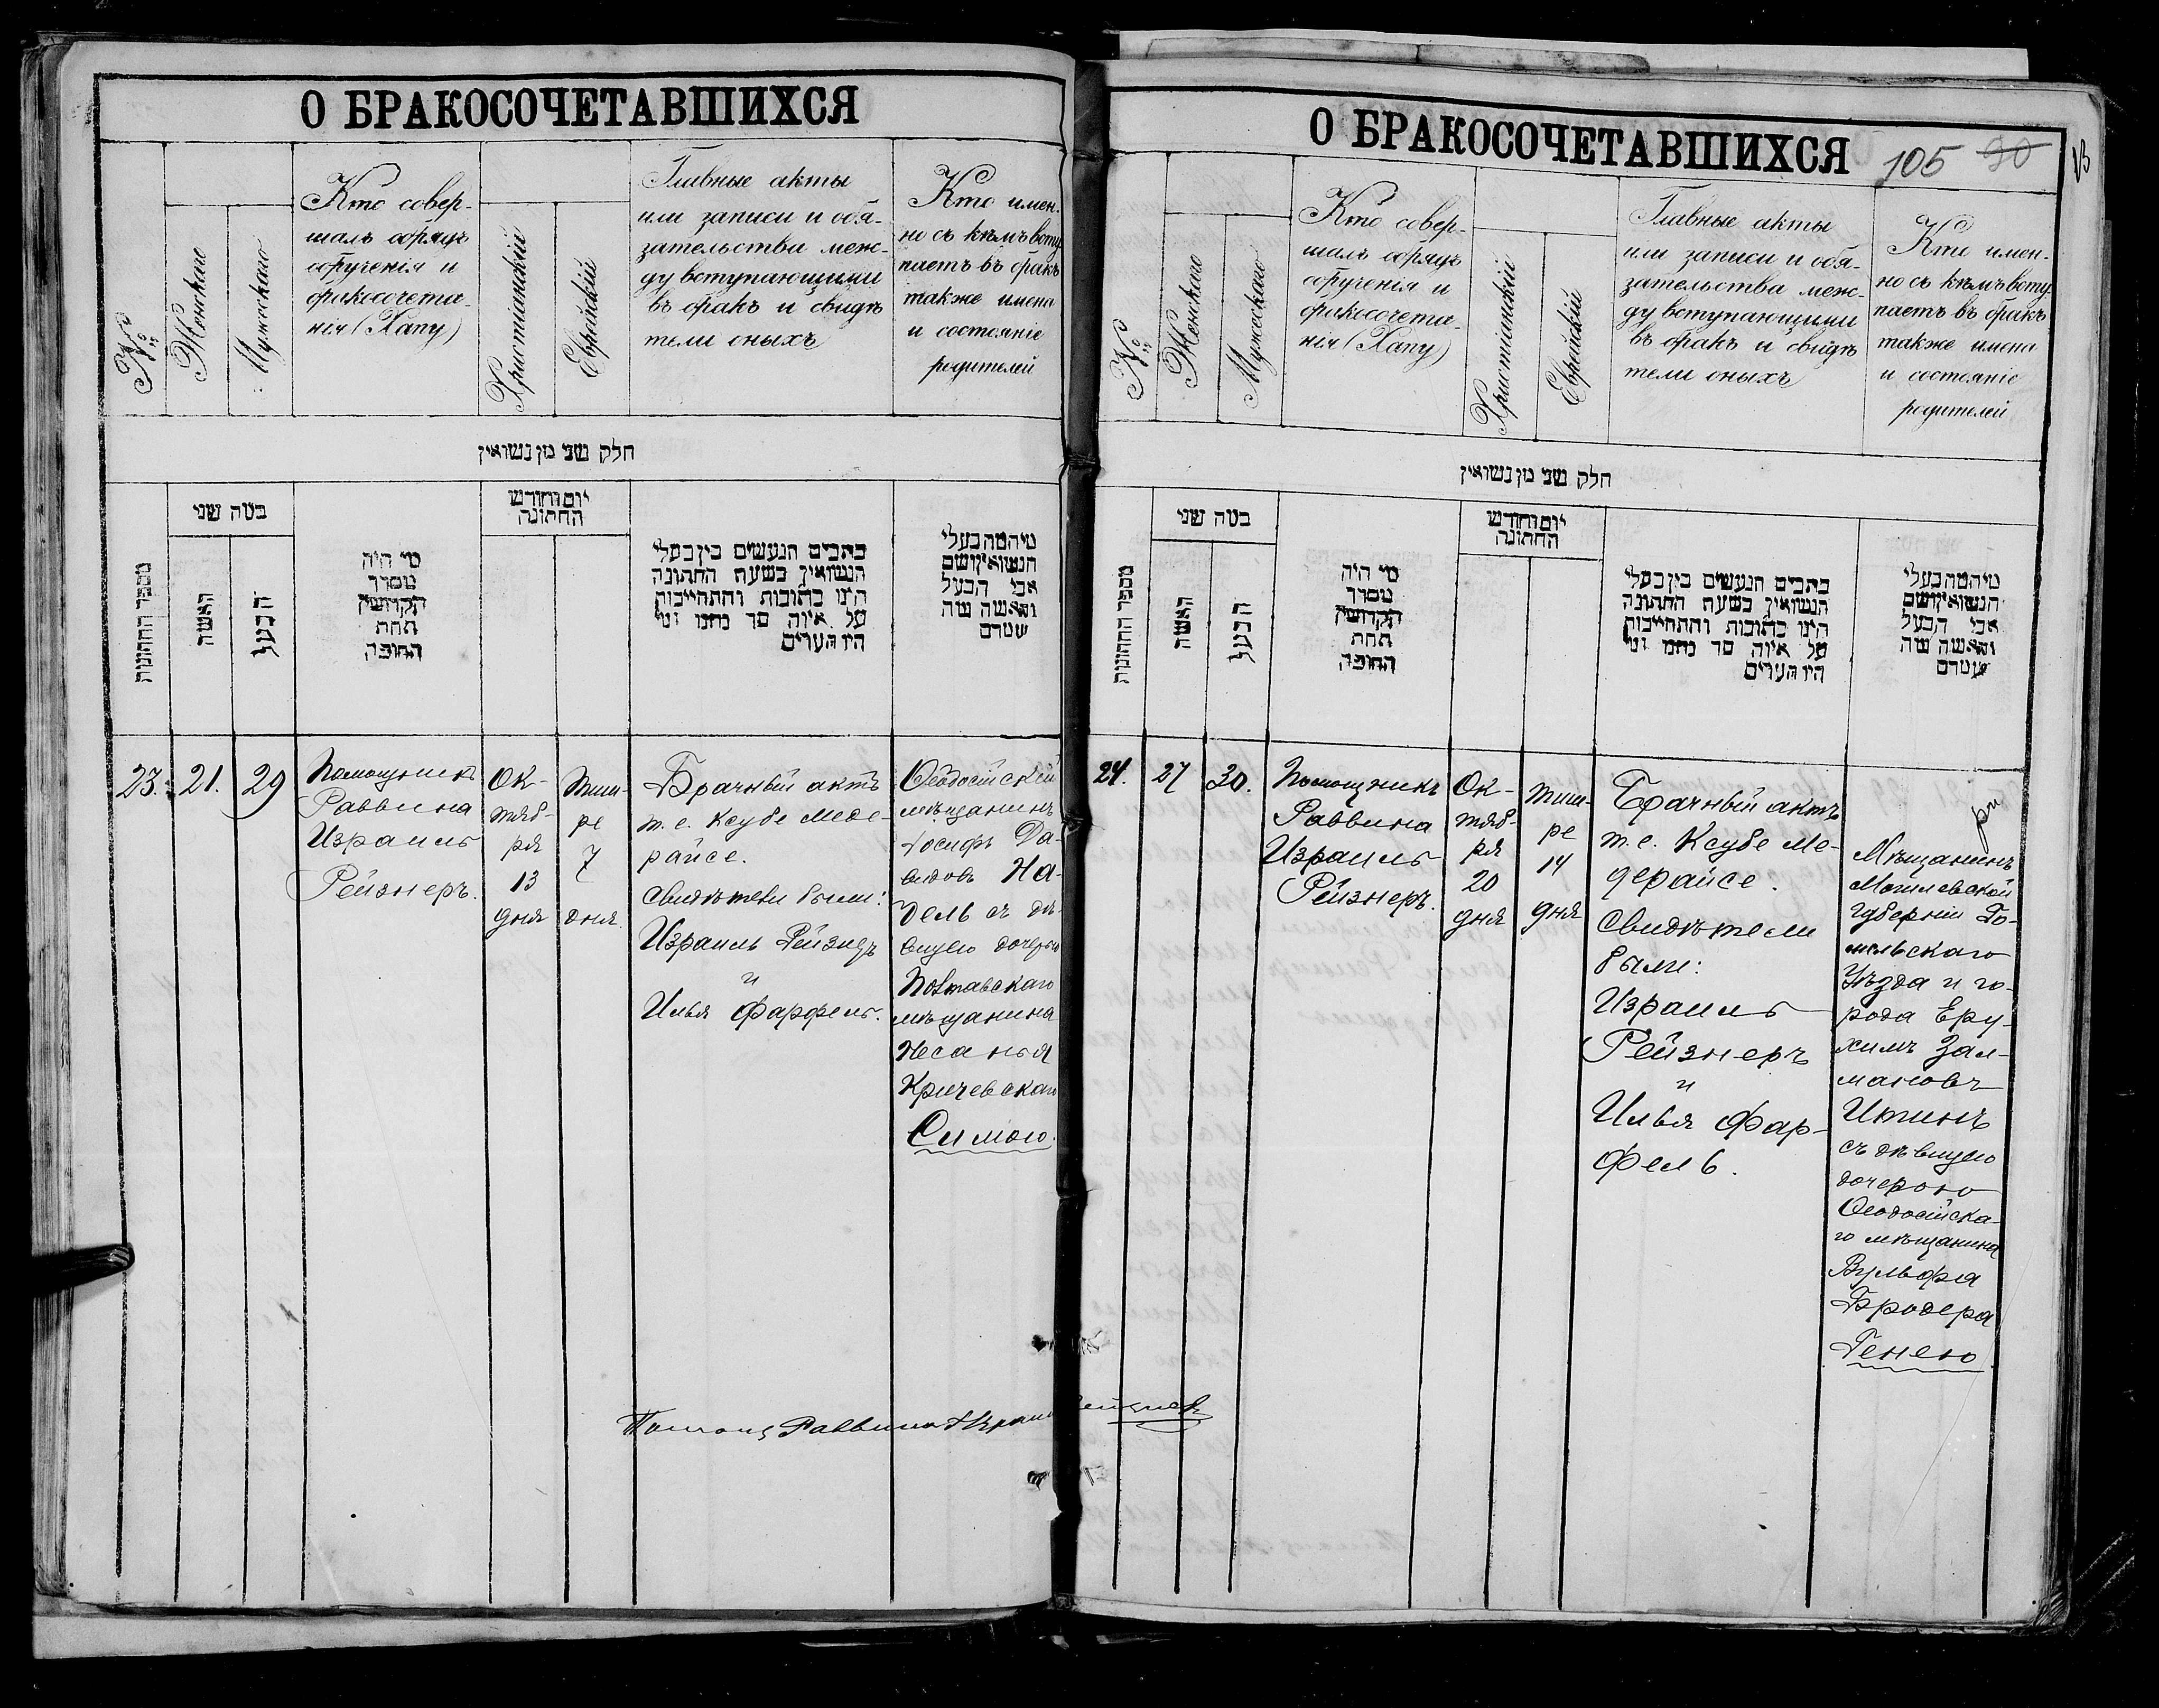 О БРАКОСОЧЕТАВШИХСЯ
№
Женскаго
Мужескаго
Кто совер-
шалъ обрядъ
обрученія и
бракосочета-
нія (Хапу)
Христіанскій
Еврейскій
Главные акты
или записи и обя-
зательства меж-
ду вступающими
въ бракъ и свидѣ
тели оныхъ
Кто имен-
но съ кѣмъ всту
паетъ въ бракъ
также имена
и состояніе
родителей
חלק שני מן נשואין
מספר החתונות
כמה שני
האשה
הבעל
מי היה
מסדר
הקדושין
תחת
החופה
יום וחודש
החתונה
כתבים הנעשים בין בעלי
הנשואין בשעת החתונה
היינו כתובות והתחייבות
על איזה סך נתנו ומי
היו העדים
מי המה בעלי
הנשואין ושם
אבי הבעל
והאשה מה
שמם
23.
21.
29
Помощникъ
Раввина
Израиль
Рейзнеръ.
Ок-
тяб-
ря
13
дня
Тиш-
ре
7
дня.
Брачный актъ
т. е. Ксубе Меде-
райсе.
Свидѣтели были:
Израиль Рейзнеръ
и
Илья Фарфель.
Ѳеодосійскій
мѣщанинъ
Іосифъ Да-
видовъ На-
дель съ дѣ-
вицею дочерью
Полтавскаго
мѣщанина
Несанья
Кричевскаго
Симою.
Помощ Раввина Израиль Рейзнеръ
О БРАКОСОЧЕТАВШИХСЯ 105 90
№
Женскаго
Мужескаго
Кто совер-
шалъ обрядъ
обрученія и
бракосочета-
нія (Хапу)
Христіанскій
Еврейскій
Главные акты
или записи и обя-
зательства меж-
ду вступающими
въ бракъ и свидѣ
тели оныхъ
Кто имен-
но съ кѣмъ всту
паетъ въ бракъ
также имена
и состояніе
родителей
חלק שני מן נשואין
מספר החתונות
כמה שני
האשה
הבעל
מי היה
מסדר
הקדושין
תחת
החופה
יום וחודש
החתונה
כתבים הנעשים בין בעלי
הנשואין בשעת החתונה
היינו כתובות והתחייבות
על איזה סך נתנו ומי
היו העדים
מי המה בעלי
הנשואין ושם
אבי הבעל
והאשה מה
שמם
24.
27
30.
Помощникъ
Раввина
Израиль
Рейзнеръ.
Ок-
тяб-
ря
20
дня
Тиш-
ре
14
дня
Брачный актъ
т. е. Ксубе Ме-
дерайсе.
Свидѣтели
были:
Израиль
Рейзнеръ
и
Илья Фар-
фель.
Мѣщанинъ
Могилевской
Губерніи Го-
мельскаго
Уѣзда и го-
рода Еру-
химъ Зал-
мановъ
Итинъ
съ дѣвицею
дочерью
Ѳеодосійска-
го мѣщанина
Вульфа
Бродера
Генею.